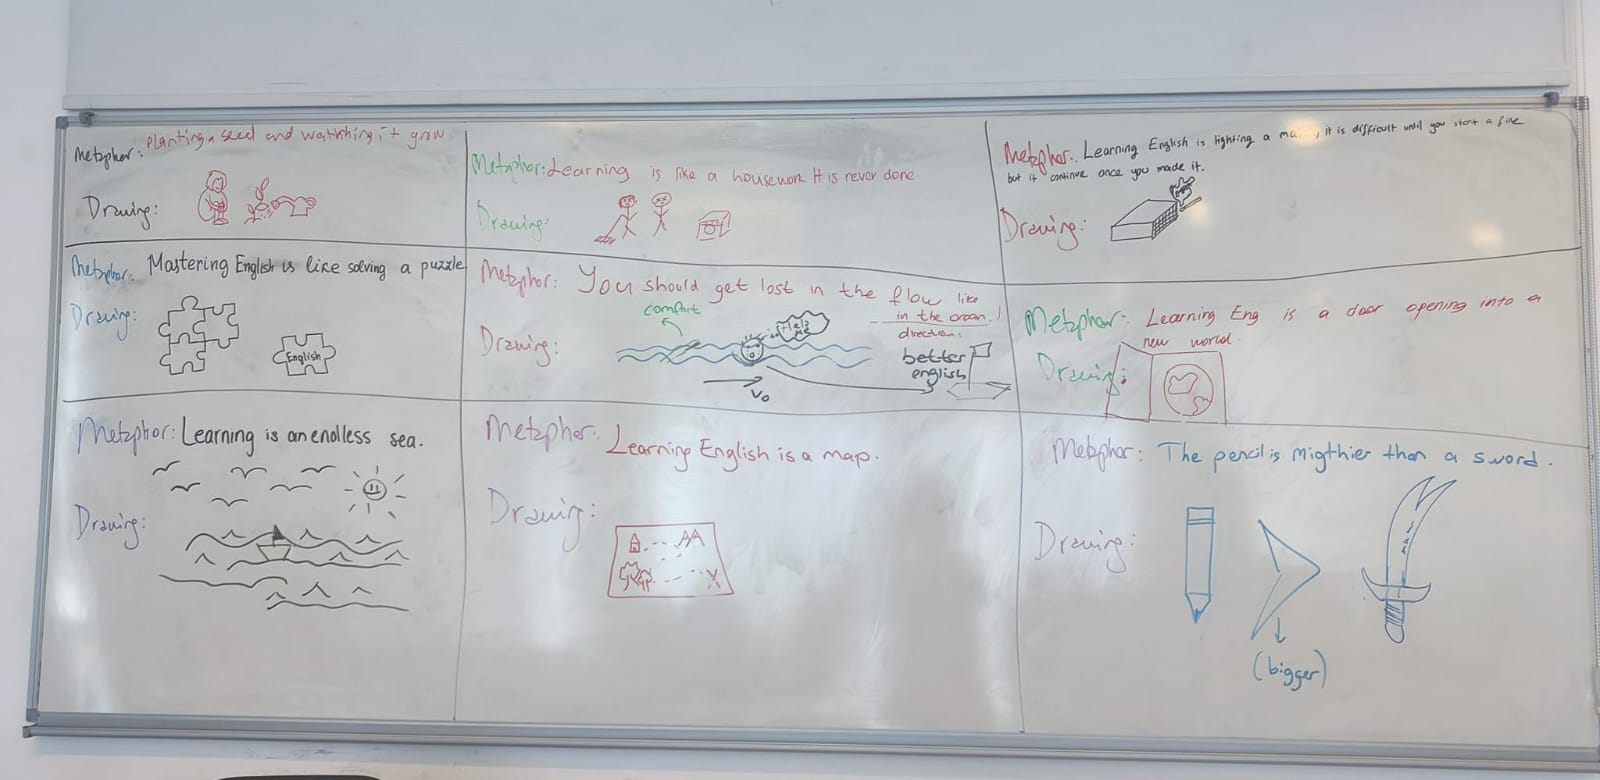 Metaphor: Planting a seed and watching it grow
Drawing:
Metaphor: Learning is like a housework It is never done
Drawing:
Metaphor: Learning English is lighting a it is difficult until you start a fire
but it continue once you made it.
Drawing:
Metaphor: Mastering English is like solving a puzzle
Drawing:
English
Metaphor: You should get lost in the flow like
in the ocean!
comfort
Help me
direction:
Drawing:
better
english
V₀
Metaphor: Learning Eng is a door opening into a
new world.
Drawing:
Metaphor: Learning is an endless sea.
Drawing:
Metaphor: Learning English is a map.
Drawing:
X
Metaphor: The pencil is migthier than a sword.
Drawing:
(bigger)